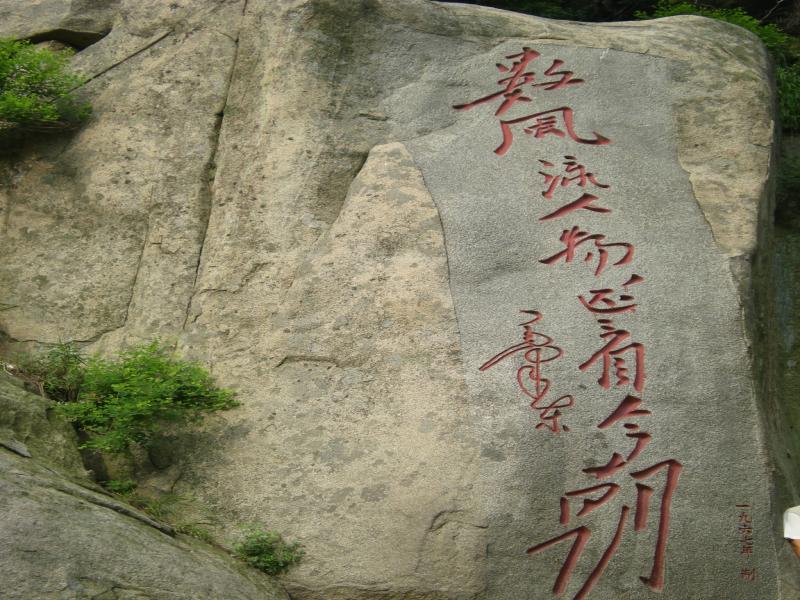 数风流人物还看今朝
毛泽东
一九六七年 制